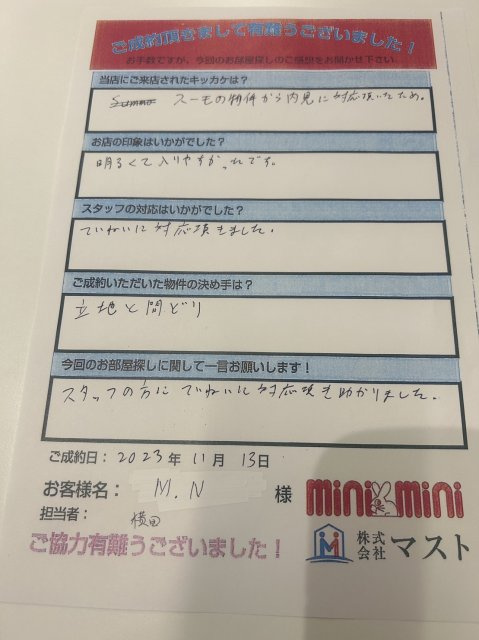 ご成約頂きまして有難うございました！
お手数ですが、今回のお部屋探しのご感想をお聞かせ下さい
当店にご来店されたキッカケは？
スーモの物件から内見に対応頂いたため。
お店の印象はいかがでした？
明るくて入りやすかったです。
スタッフの対応はいかがでした？
ていねいに対応頂きました。
ご成約いただいた物件の決め手は？
立地と間どり
今回のお部屋探しに関して一言お願いします！
スタッフの方にていねいに対応頂き助かりました。
ご成約日： 2023 年 11 月 13 日
お客様名： M.N 様
担当者： 横田
ご協力有難うございました！
mini mini
株式会社 マスト